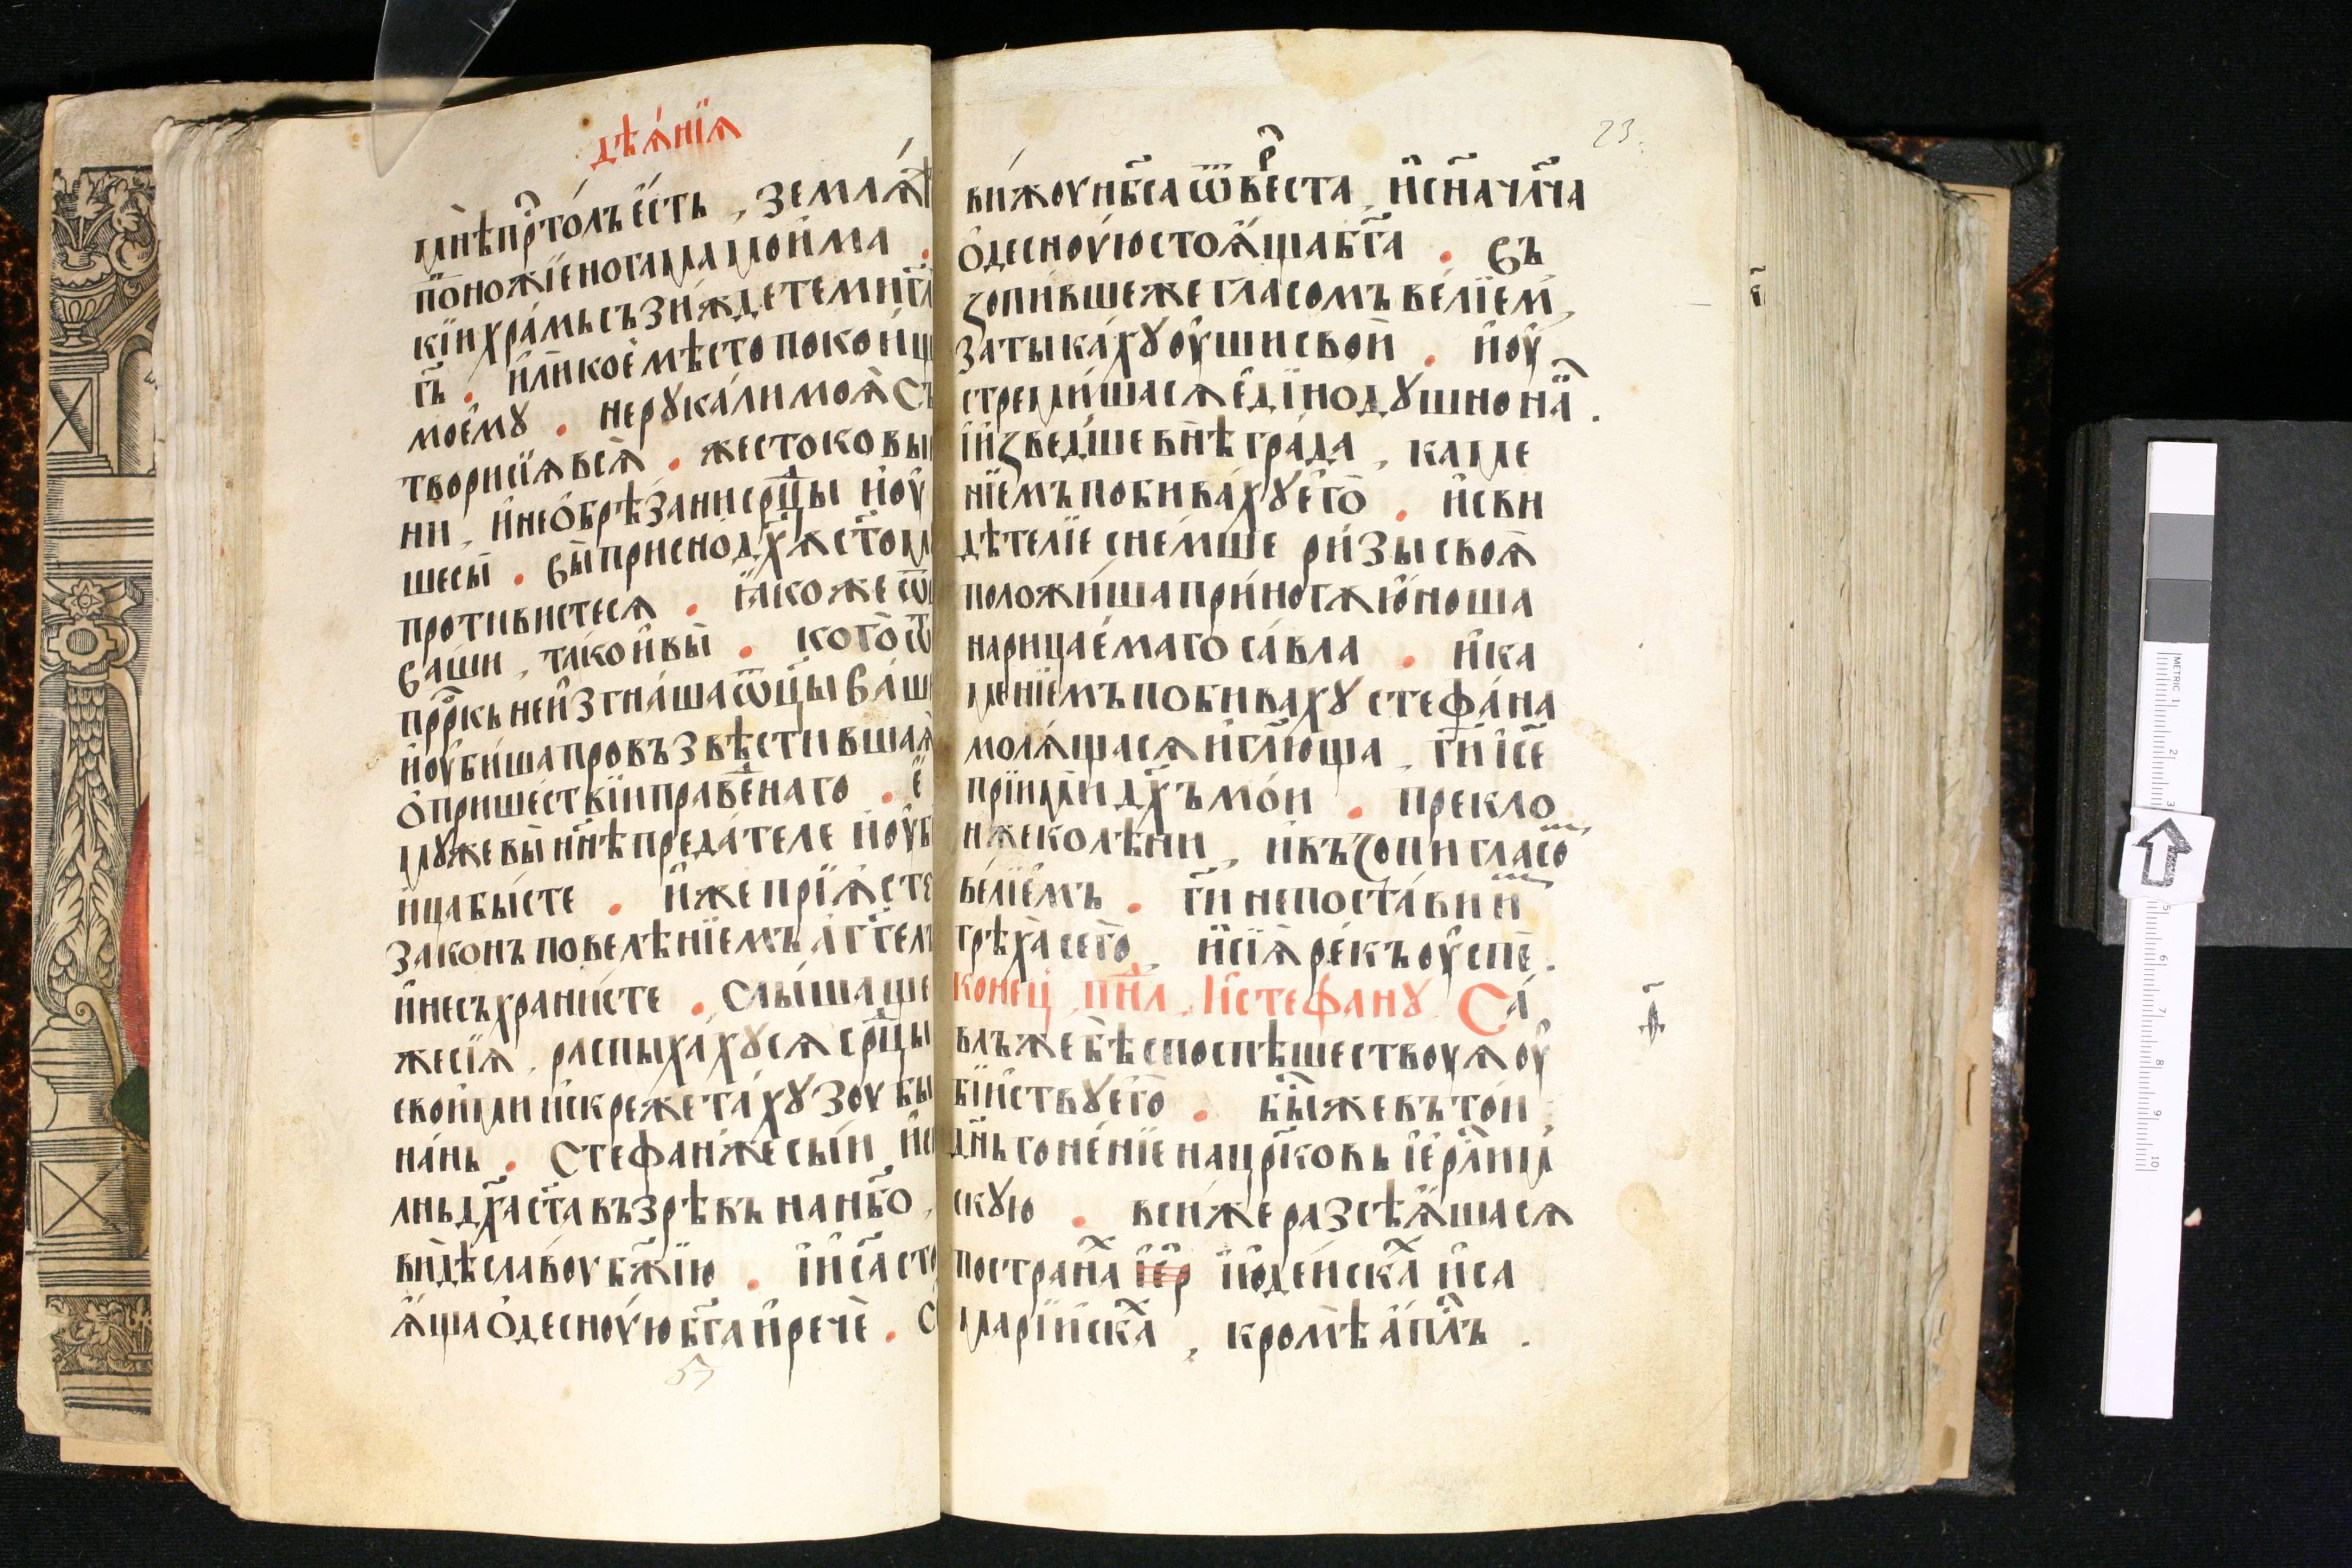 дѣѧ́нїѧ
мнѣ прⷭ҇то́лъ є҆́сть , землѧ́
поⷣножїе ногама мои́ма .
кїи хра́мь съзи́ждете ми гл҃
гь҃ . и҆лѝ коѐ мѣсто поко́ищ
моемꙋ̀ . не рꙋка́ ли моѧ̀ съ
твори сїѧ всѧ̀ . жестоковы
ни , и҆ не ѻ҆брѣ́зани срⷣцы и҆ оу҆
шесы̀ . вы̀ при́сно дх҃ѫ ст҃омꙋ
противистесѧ . ꙗ҆́коже ѿ
ва́ши , та́ко и҆ вы̀ . кого̀ ѿ
прⷪ҇ркь не и҆згна́ша ѿцы̀ ва́ш
и҆ оу҆би́ша провъзвѣсти́вшаѧ
ѡ҆ прише́ствїи пра́веⷣнаго . є҆
мꙋже вы̀ нн҃ѣ преда́теле и҆ оу҆б
и́ца бы́сте . и҆́же прїѧ́сте
законъ повелѣ́нїемъ а҆́гг҃ел
и҆ не съхрани́сте . Слы́шаще
же сїѧ , распыха́хꙋсѧ срⷣцы
свои́ми и҆ скрежета́хꙋ зоубы
на́нь . Стефан́ же сы́и и҆с
лнь дх҃а ст҃а възрѣ́въ на нб҃о ,
ви́дѣ сла́воу бж҃їю . і҆ іс҃а сто
ѧ́ща ѡ҆деснꙋ́ю бг҃а и҆ речѐ . с
57
23.
ви́жоу нб҃са ѿве́рⷭ҇ста , и҆ сн҃а чл҃ча
ѻ҆десноу́ю стоѧ́ща бг҃а . Въ
ꙁопи́вше же гла́сомъ ве́лїем ,
затыка́хꙋ оу҆́ши свои̑ . и҆ оу҆
стреми́шасѧ є҆ді́нодꙋшно на́ⷩ .
і҆ и҆ꙁве́дше внѣ̀ гра́да , каме
нїемъ побива́хꙋ є҆го̀ . и҆ сви
дѣ́телїе сне́мше ри́зы своѧ̀
положи́ша при́ ногѫ ю҆́ноша
нарица́емаго са́вла . и҆ ка
менїемъ побивахꙋ стефа́на
молѧ́щасѧ и҆ гл҃юща , гн҃ і҆се҃
прїимѝ дх҃ъ мо́и . прекло
н́ же колѣ́ни , и҆ въꙁопѝ гласоⷨ
ве́лїемъ . гн҃ не поста́ви иⷨ
грѣха̀ сего̀ , и҆ сїѧ̀ ре́къ оу҆спѐ .
Конець , пнⷣл , и҆ стефанꙋ Са́
влъ же бѣ̀ споспѣ́шествоуѧ оу҆
бїи́ствꙋ є҆го̀ . бы́ⷭ же въ то́и
дн҃ь гоне́нїе на црⷪ҇ковь і҆ерлⷭ҇им
скꙋю . вси́ же разсѣ́ѧшасѧ
по странаⷯ і҆ер і҆юде́искаⷯ и҆ са
марїи́скаⷯ , кромѣ а҆пⷭ҇лъ .